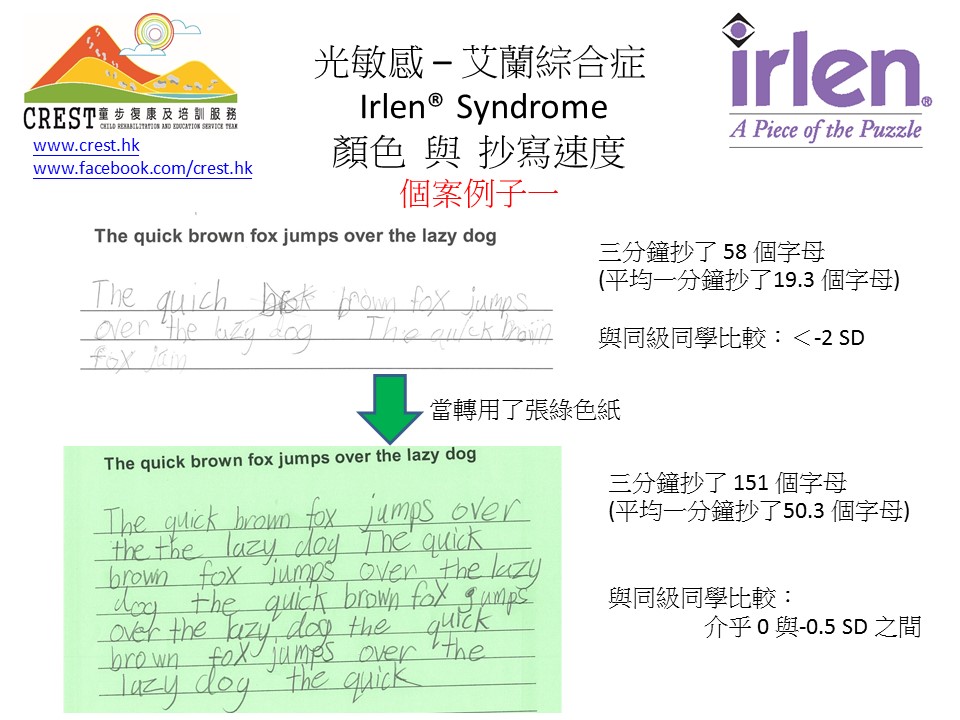 CREST童步復康及培訓服務
CHILD REHABILITATION AND EDUCATION SERVICE TEAM
www.crest.hk
www.facebook.com/crest.hk
光敏感 – 艾蘭綜合症
Irlen® Syndrome
顏色 與 抄寫速度
個案例子一
irlen®
A Piece of the Puzzle
The quick brown fox jumps over the lazy dog
The quich brown fox jumps
over the lazy dog The quick brown
fox jam
三分鐘抄了 58 個字母
(平均一分鐘抄了19.3 個字母)
與同級同學比較：＜-2 SD
當轉用了張綠色紙
The quick brown fox jumps over the lazy dog
The quick brown fox jumps over
the the lazy dog The quick
brown fox jumps over the lazy
dog the quick brown fox jumps
over the lazy dog the quick
brown fox jumps over the
lazy dog the quick
三分鐘抄了 151 個字母
(平均一分鐘抄了50.3 個字母)
與同級同學比較：
介乎 0 與-0.5 SD 之間